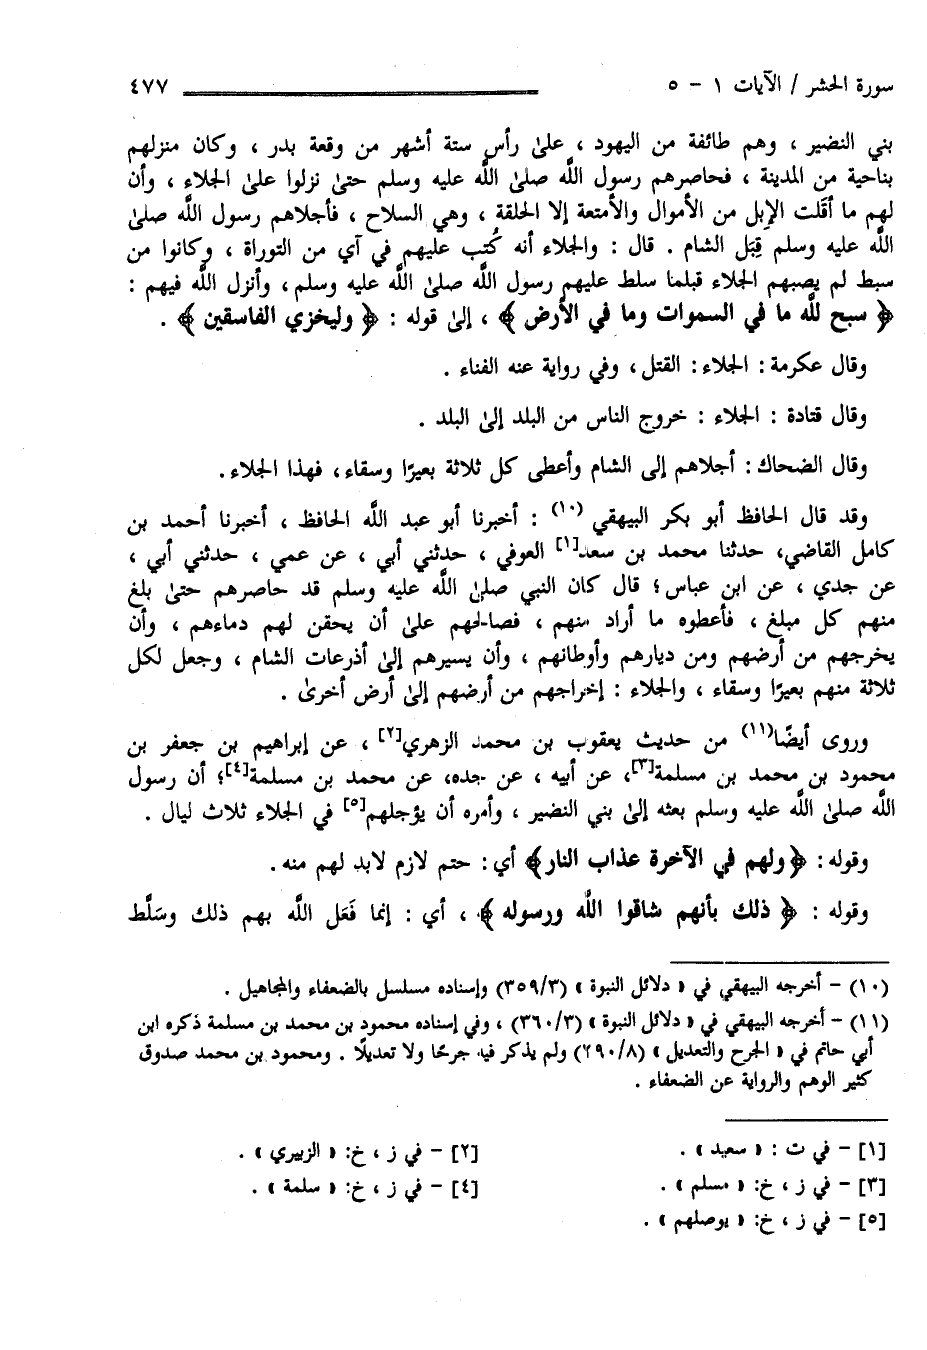 سورة الحشر / الآيات ١ - ٥ ٤٧٧
بني النضير ، وهم طائفة من اليهود ، علىٰ رأس ستة أشهر من وقعة بدر ، وكان منزلهم
بناحية من المدينة ، فحاصرهم رسول اللَّه صلىٰ اللَّه عليه وسلم حتىٰ نزلوا علىٰ الجلاء ، وأن
لهم ما أقَلت الإبل من الأموال والأمتعة إلا الحلقة ، وهي السلاح ، فأجلاهم رسول اللَّه صلىٰ
اللَّه عليه وسلم قِبَل الشام . قال : والجلاء أنه كُتب عليهم في آي من التوراة ، وكانوا من
سبط لم يصبهم الجلاء قبلما سلط عليهم رسول اللَّه صلىٰ اللَّه عليه وسلم، وأنزل اللَّه فيهم :
﴿ سبح للَّه ما في السموات وما في الأرض ﴾ ، إلىٰ قوله : ﴿ وليخزي الفاسقين ﴾ .
وقال عكرمة : الجلاء : القتل، وفي رواية عنه الفناء .
وقال قتادة : الجلاء : خروج الناس من البلد إلىٰ البلد .
وقال الضحاك : أجلاهم إلى الشام وأعطى كل ثلاثة بعيرًا وسقاء، فهذا الجلاء.
وقد قال الحافظ أبو بكر البيهقي (١٠) : أخبرنا أبو عبد اللَّه الحافظ ، أخبرنا أحمد بن
كامل القاضي، حدثنا محمد بن سعد[١] العوفي ، حدثني أبي ، عن عمي ، حدثني أبي ،
عن جدي ، عن ابن عباس ؛ قال كان النبي صلىٰ اللَّه عليه وسلم قد حاصرهم حتىٰ بلغ
منهم كل مبلغ ، فأعطوه ما أراد منهم ، فصالحهم علىٰ أن يحقن لهم دماءهم ، وأن
يخرجهم من أرضهم ومن ديارهم وأوطانهم ، وأن يسيرهم إلىٰ أذرعات الشام ، وجعل لكل
ثلاثة منهم بعيرًا وسقاء ، والجلاء : إخراجهم من أرضهم إلىٰ أرض أخرىٰ .
وروى أيضًا(١١) من حديث يعقوب بن محمد الزهري[٢] ، عن إبراهيم بن جعفر بن
محمود بن محمد بن مسلمة[٣]، عن أبيه ، عن جده، عن محمد بن مسلمة[٤]؛ أن رسول
اللَّه صلىٰ اللَّه عليه وسلم بعثه إلىٰ بني النضير ، وأمره أن يؤجلهم[٥] في الجلاء ثلاث ليال .
وقوله : ﴿ ولهم في الآخرة عذاب النار ﴾ أي : حتم لازم لابد لهم منه.
وقوله : ﴿ ذلك بأنهم شاقوا اللَّه ورسوله ﴾ ، أي : إنما فَعَل اللَّه بهم ذلك وسَلَّط
(١٠) - أخرجه البيهقي في « دلائل النبوة » (٣٥٩/٣) وإسناده مسلسل بالضعفاء والمجاهيل .
(١١) - أخرجه البيهقي في « دلائل النبوة » (٣٦٠/٣) ، وفي إسناده محمود بن محمد بن مسلمة ذكره ابن
أبي حاتم في « الجرح والتعديل » (٢٩٠/٨) ولم يذكر فيه جرحًا ولا تعديلًا . ومحمود بن محمد صدوق
كثير الوهم والرواية عن الضعفاء .
[١] - في ت : « سعيد » . [٢] - في ز ، خ: « الزبيري » .
[٣] - في ز ، خ: « مسلم » . [٤] - في ز ، خ: « سلمة » .
[٥] - في ز ، خ: « يوصلهم » .